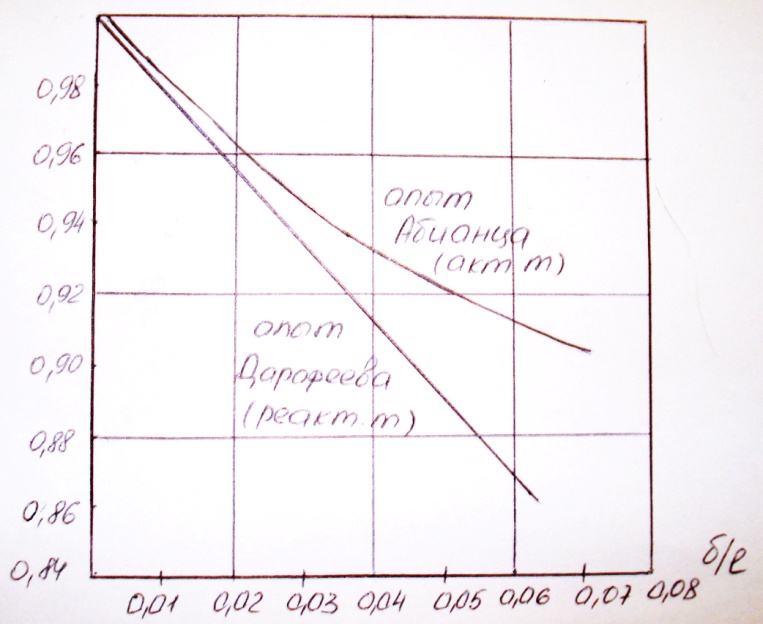 0,98
0,96
0,94
0,92
0,90
0,88
0,86
0,84
опыт
Абианца
(акт.т)
опыт
Дарофеева
(реакт.т)
0,01 0,02 0,03 0,04 0,05 0,06 0,07 0,08
б/е